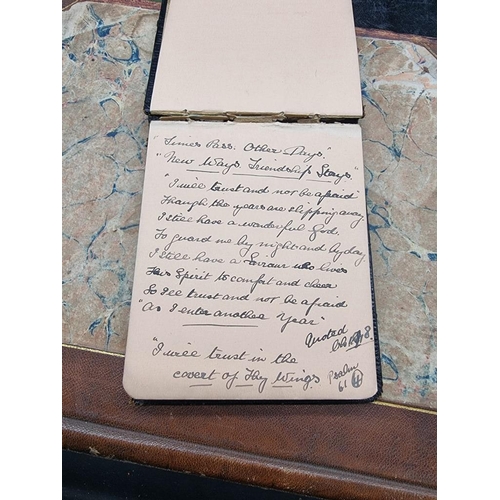 "Times Pass. Other Days"
"New Ways Friendship Stays"
"I will trust and not be afraid
Though the years are slipping away
I still have a wonderful God.
To guard me by night and by day.
I still have a Saviour who lives
His Spirit to comfort and cheer
So I'll trust and not be afraid
"As I enter another Year"
Quoted
"I will trust in the
covert of Thy Wings
Psalm
61 4